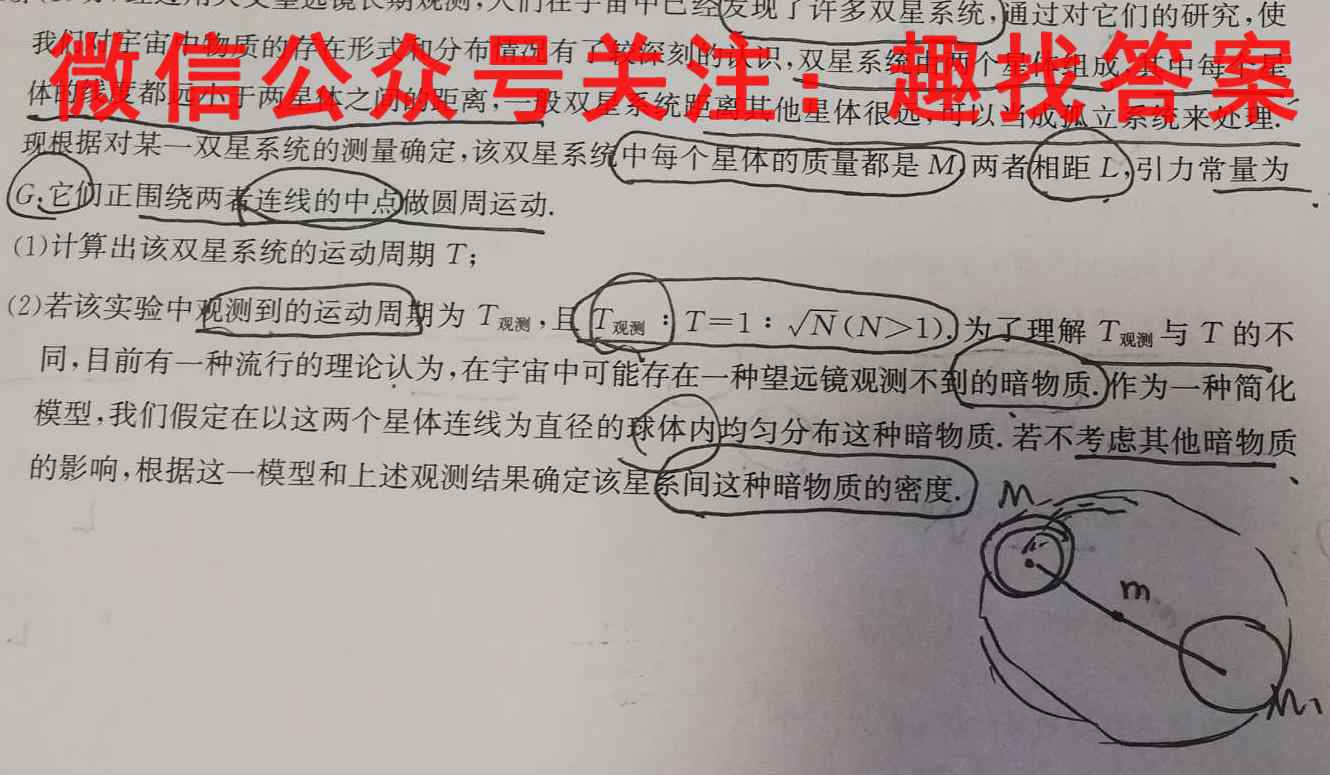 经过用天文望远镜长期观测,人们在宇宙中已经发现了许多双星系统,通过对它们的研究,使
我们对宇宙中物质的存在形式和分布情况有了较深刻的认识,双星系统由两个星体组成,其中每个星
微信公众号关注：趣找答案
体的线度都远小于两星体之间的距离,一般双星系统距离其他星体很远,可以当成孤立系统来处理.
现根据对某一双星系统的测量确定,该双星系统中每个星体的质量都是 M,两者相距 L,引力常量为
G,它们正围绕两者连线的中点做圆周运动.
(1)计算出该双星系统的运动周期 T;
(2)若该实验中观测到的运动周期为 T观测,且 T观测 : T=1 : √N(N>1).为了理解 T观测 与 T 的不
同,目前有一种流行的理论认为,在宇宙中可能存在一种望远镜观测不到的暗物质.作为一种简化
模型,我们假定在以这两个星体连线为直径的球体内均匀分布这种暗物质.若不考虑其他暗物质
的影响,根据这一模型和上述观测结果确定该星系间这种暗物质的密度.
M
m
M